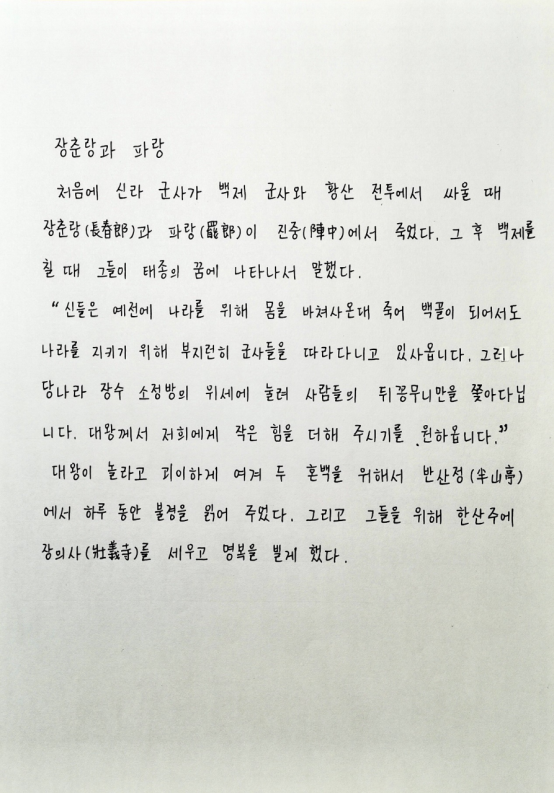 장춘랑과 파랑
처음에 신라 군사가 백제 군사와 황산 전투에서 싸울 때
장춘랑(長春郎)과 파랑(罷郎)이 진중(陣中)에서 죽었다. 그 후 백제를
칠 때 그들이 태종의 꿈에 나타나서 말했다.
“신들은 예전에 나라를 위해 몸을 바쳐사온대 죽어 백골이 되어서도
나라를 지키기 위해 부지런히 군사들을 따라다니고 있사옵니다. 그러나
당나라 장수 소정방의 위세에 눌려 사람들의 뒤꽁무니만을 쫓아다닙
니다. 대왕께서 저희에게 작은 힘을 더해 주시기를 원하옵니다.”
대왕이 놀라고 괴이하게 여겨 두 혼백을 위해서 반산정(半山亭)
에서 하루 동안 불경을 읽어 주었다. 그리고 그들을 위해 한산주에
장의사(壯義寺)를 세우고 명복을 빌게 했다.